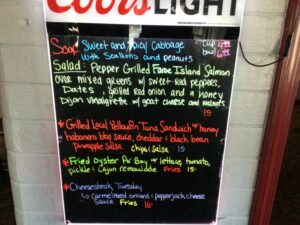 Coors LIGHT
Soup Sweet and Spicy Cabbage cup 4.99
with Scallions and peanuts bowl 6.99
Salad: Pepper Grilled Faroe Island Salmon
over mixed greens w/ sweet red peppers,
Dates, grilled red onion and a honey
Dijon vinaigrette w/ goat cheese and walnuts.
15
* Grilled Local Yellowfin Tuna Sandwich w/ honey
habanero bbq sauce, cheddar + black bean
pineapple Salsa chips & salsa 15
* Fried oyster Po Boy w/ lettuce, tomato,
pickle + Cajun remoulade Fries 15
* Cheesesteak Tuesday
w/ Carmelized onions + pepperjack cheese
Sauce Fries 15